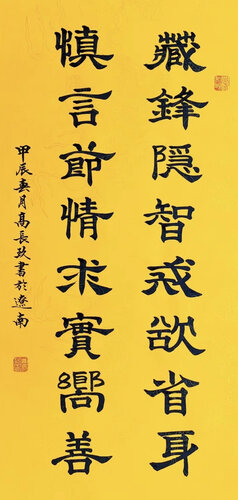 藏鋒隐智戒欲省身
慎言節情求實嚮善
甲辰春月高長玖書於遼南